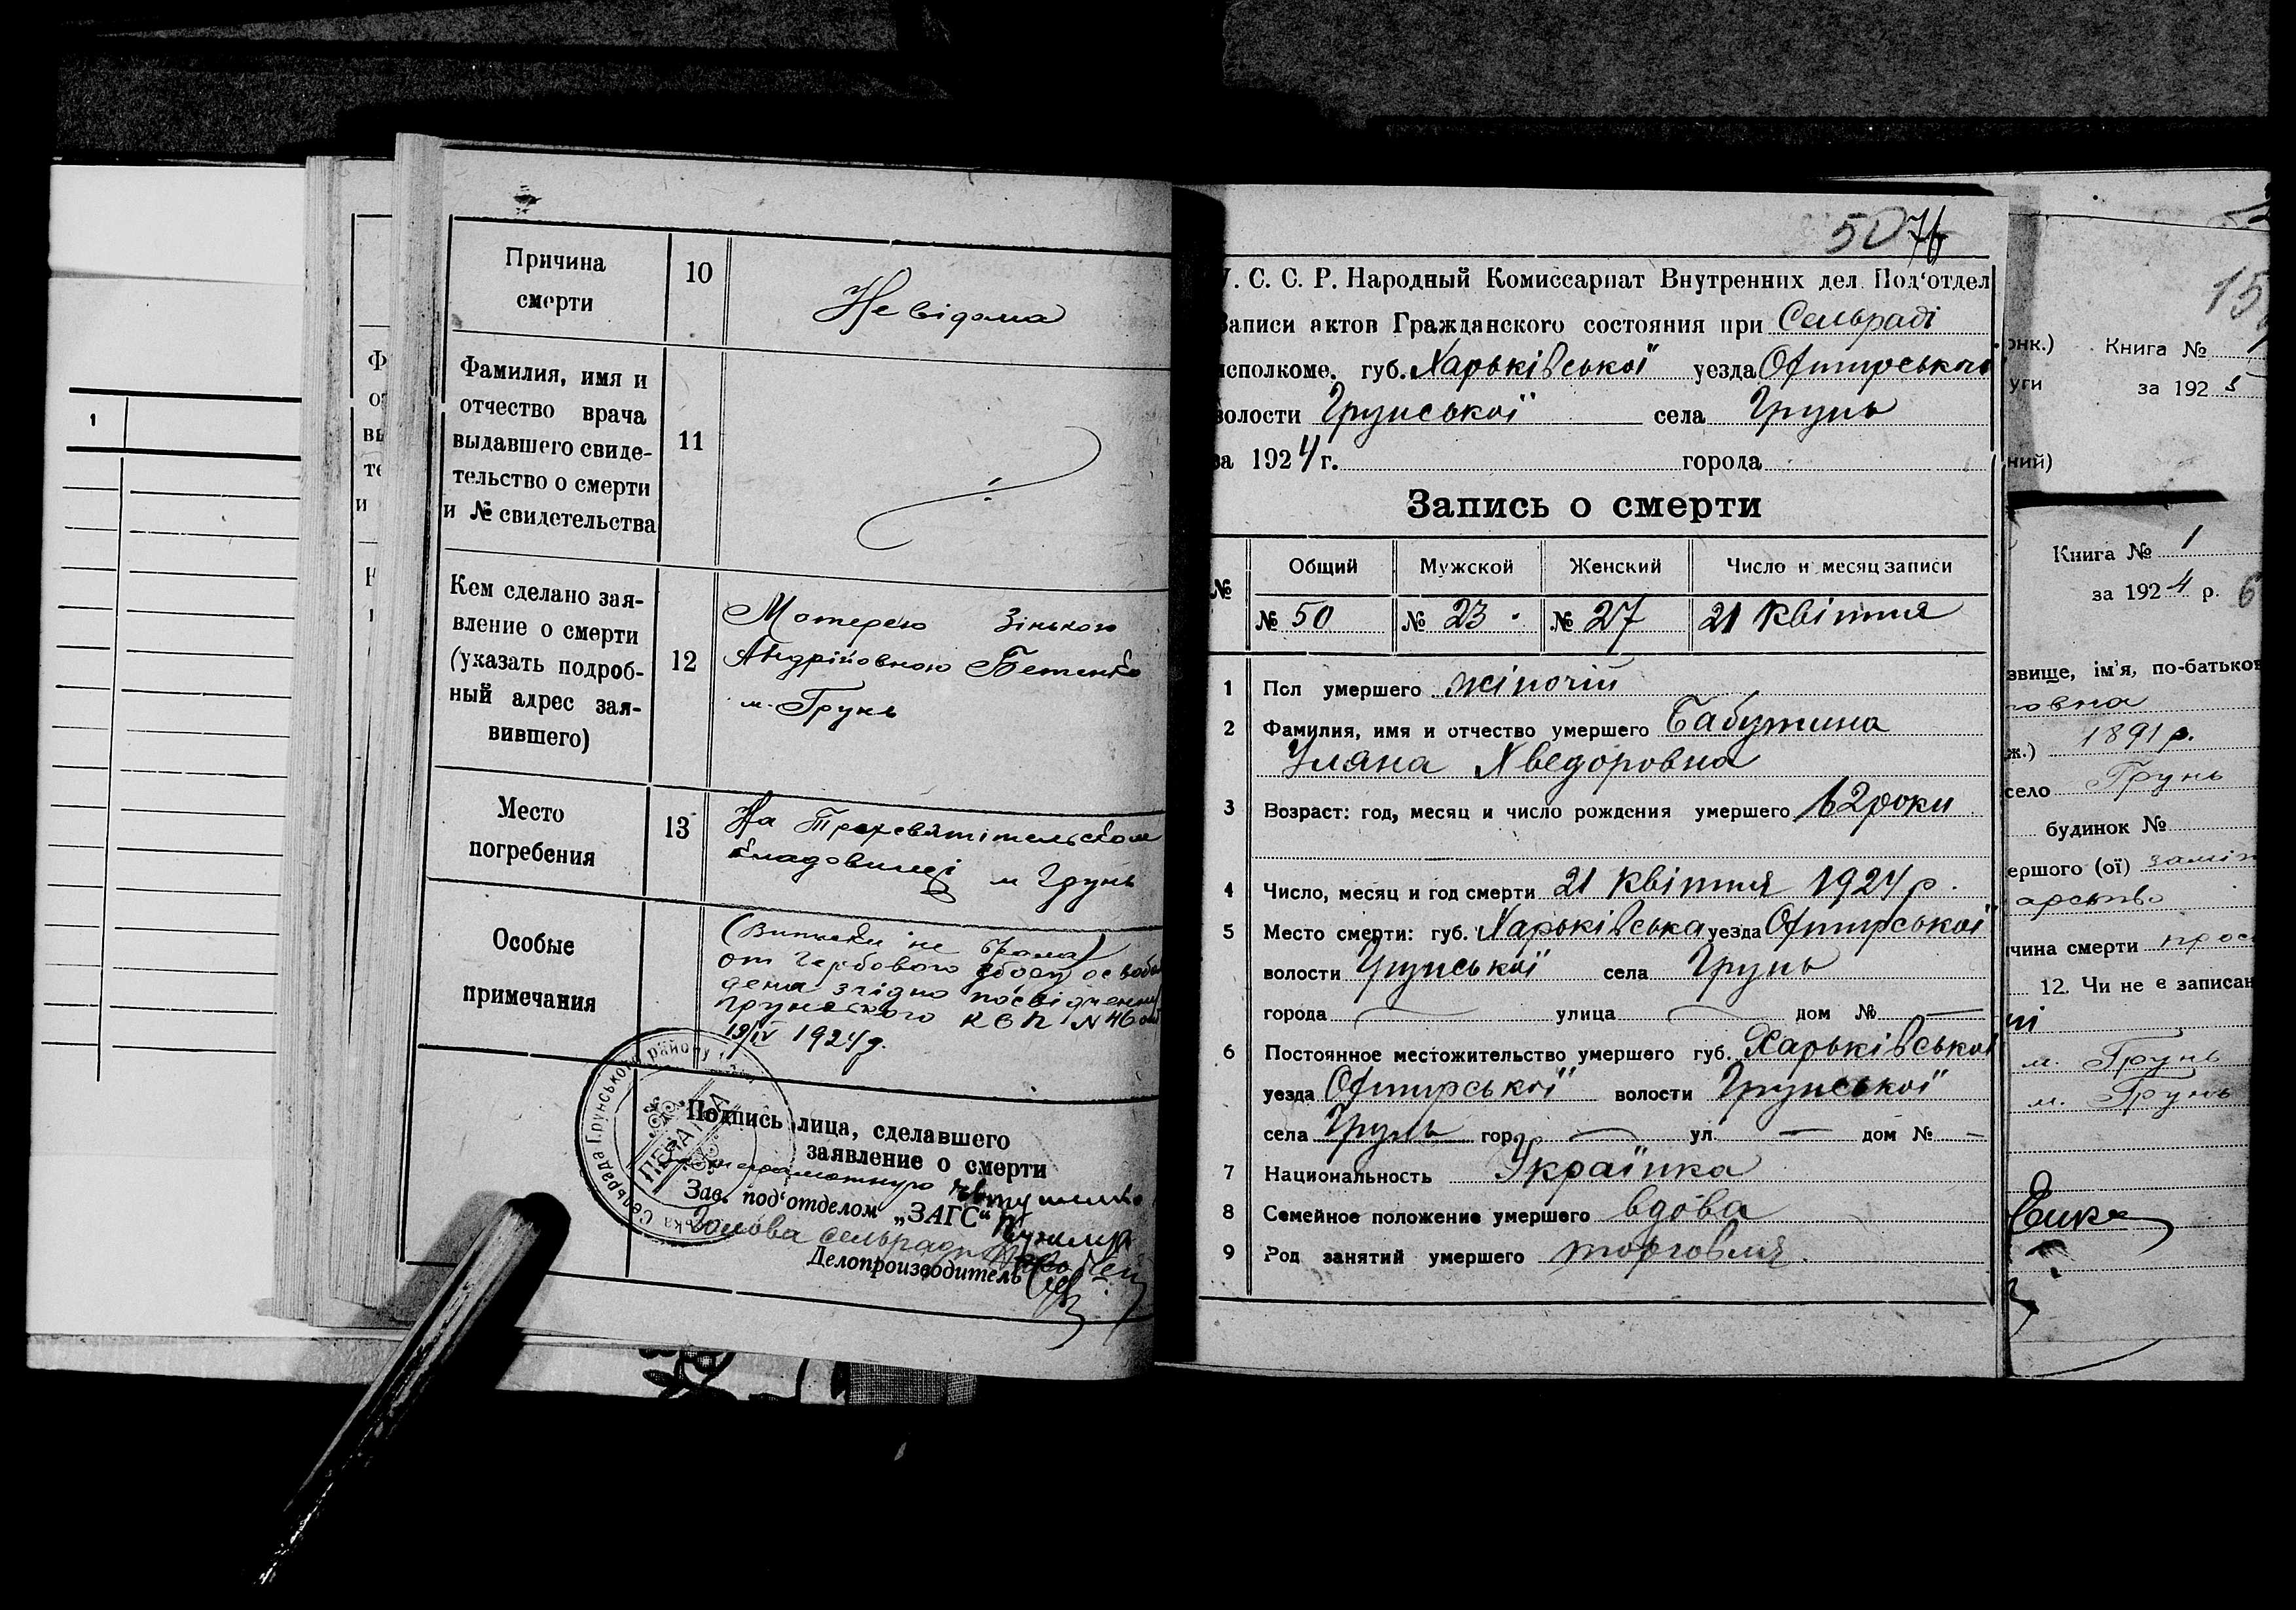 Причина
смерти
10
Невідома
Фамилия, имя и
отчество врача
выдавшего свиде-
тельство о смерти
и № свидетельства
11
Кем сделано зая-
вление о смерти
(указать подроб-
ный адрес зая-
вившего)
12
Матерею Зінькою
Андріівною
м. Грунь
Место
погребения
13
На Трехсвятительском
кладовищі м Грунь
Особые
примечания
(Виписки не
от гербового збору освобо
дена згідно посвідчення
Грунського КВП N 46 от
19/IV 1924 р.
Подпись лица, сделавшего
заявление о смерти
неграмотную
Зав. под'отделом „ЗАГС“
Голова сельради
Делопроизводитель
Сельрада Грунського району
ПЕЧАТКА
50 76
У. С. С. Р. Народный Комиссариат Внутренних дел Под'отдел
Записи актов Гражданского состояния при Сельраді
исполкоме. губ. Харьківської уезда Охтирського
волости Грунської села Грунь
за 1924 г. города
Запись о смерти
№ Общий Мужской Женский Число и месяц записи
№ 50 № 23 № 27 21 квітня
1 Пол умершего жіночій
2 Фамилия, имя и отчество умершего
Уляна Хведоровна
3 Возраст: год, месяц и число рождения умершего 62 роки
4 Число, месяц и год смерти 21 квітня 1924 р.
5 Место смерти: губ. Харьківська уезда Охтирської
волости Грунської села Грунь
города — улица — дом № —
6 Постоянное местожительство умершего губ. Харьківської
уезда Охтирської волости Грунської
села Грунь гор. — ул. — дом № —
7 Национальность Українка
8 Семейное положение умершего вдова
9 Род занятий умершего торговля.
1
15
онк.) Книга №
уги за 1925
ний)
Книга № 1
за 1924 р. 6
звище, ім'я, по-батьков
овна
ж.) 1891 р.
село Грунь
будинок №
ершого (ої)
арство
чина смерти
12. Чи не є записан
м. Грунь
м. Грунь